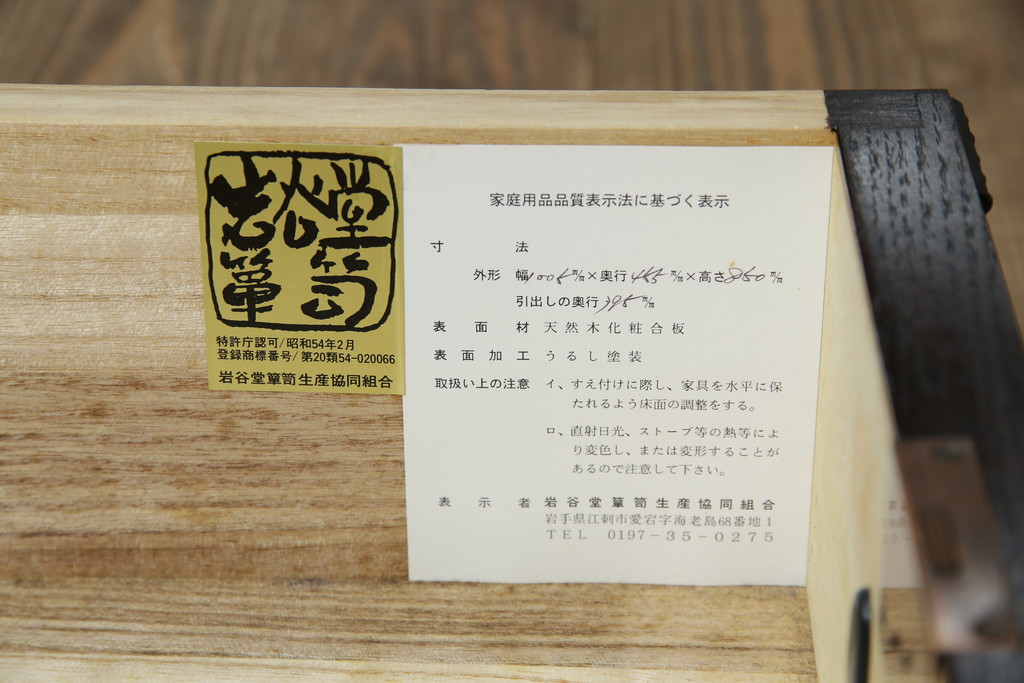 岩谷堂簞笥
特許庁認可/昭和54年2月
登録商標番号/第20類54-020066
岩谷堂簞笥生産協同組合
家庭用品品質表示法に基づく表示
寸 法
外形 幅1005m/m×奥行455m/m×高さ850m/m
引出しの奥行395m/m
表面材 天然木化粧合板
表面加工 うるし塗装
取扱い上の注意 イ、すえ付けに際し、家具を水平に保
たれるよう床面の調整をする。
ロ、直射日光、ストーブ等の熱等によ
り変色し、または変形することが
あるので注意して下さい。
表示者 岩谷堂簞笥生産協同組合
岩手県江刺市愛宕字海老島68番地1
TEL 0197-35-0275